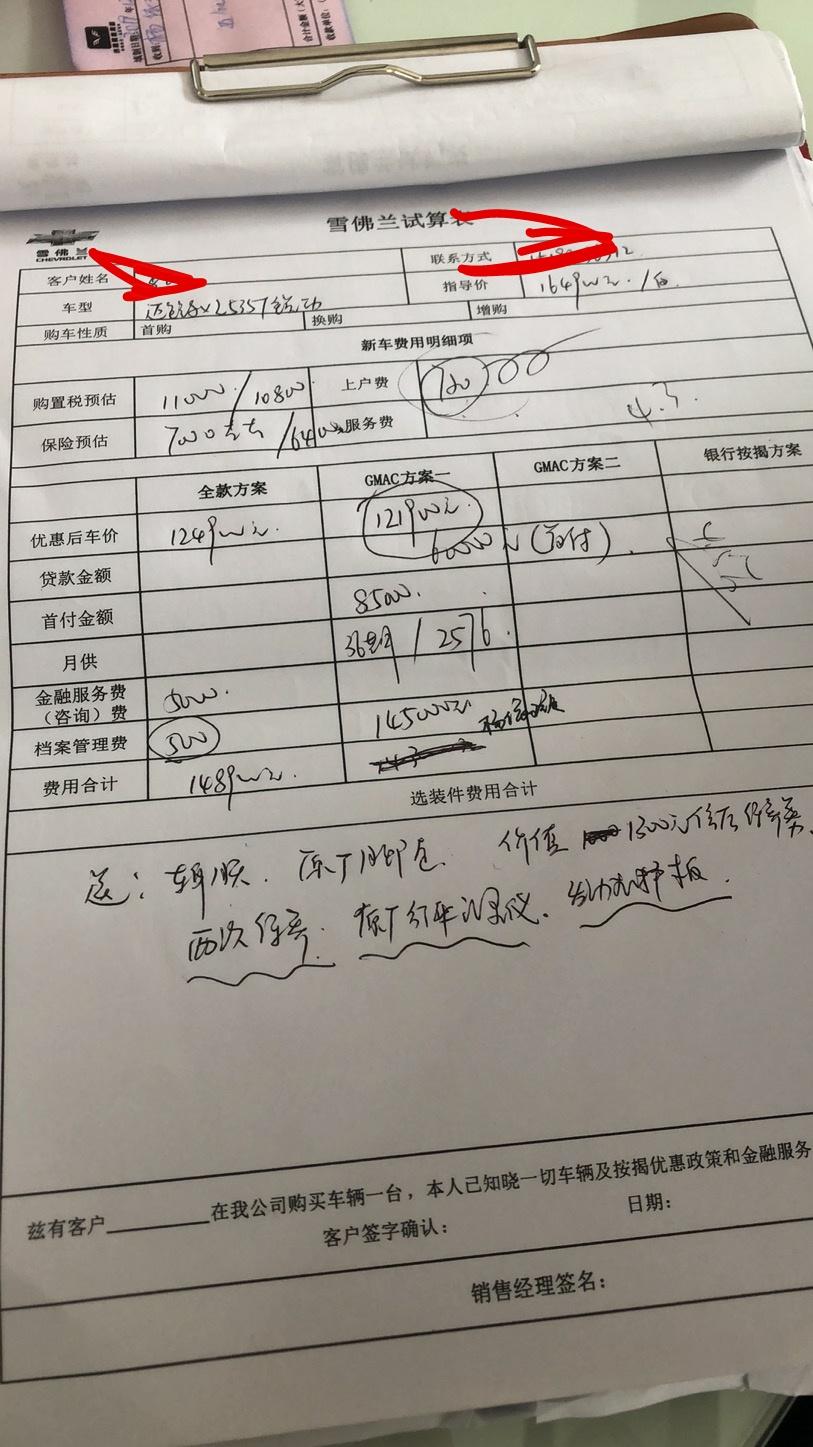 雪佛兰试算表
雪佛兰
CHEVROLET
客户姓名 联系方式
车型 迈锐宝XL 535T锐动 指导价 164900元
购车性质 首购 换购 增购
新车费用明细项
购置税预估 11000/10800 上户费 700
保险预估 7000左右/6400 服务费
4.3.
全款方案 GMAC方案一 GMAC方案二 银行按揭方案
优惠后车价 124900元. 121900元.
贷款金额 60000元(首付).
首付金额 8500.
月供 36期/2576.
金融服务费
(咨询)费 5000.
档案管理费 500 145000元
费用合计 148900元.
选装件费用合计
送:车膜. 原厂脚垫. 价值 1300元 保养
两次保养. 原厂行车记录仪. 发动机护板.
兹有客户 在我公司购买车辆一台,本人已知晓一切车辆及按揭优惠政策和金融服务
客户签字确认: 日期:
销售经理签名: